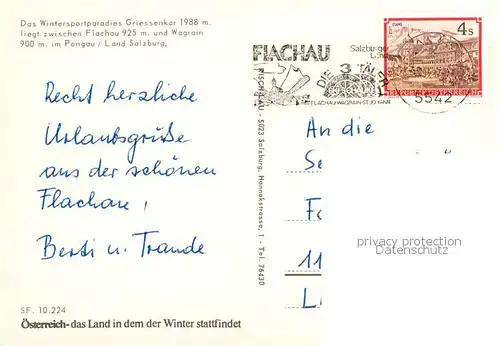 Das Wintersportparadies Griessenkar 1988 m.
liegt zwischen Flachau 925 m. und Wagrain
900 m. im Pongau / Land Salzburg.
Recht herzliche
Urlaubsgrüße
aus der schönen
Flachau,
Berti u. Traude
SF. 10.224
Österreich - das Land in dem der Winter stattfindet
RISCH-LAU - 5023 Salzburg, Hannakstrasse, 1 - Tel. 76430
FLACHAU
Salzburger
Land
DIE 3 TÄLER
FLACHAU WAGRAIN ST. JOHANN
5542
STAMS
4 S
REPUBLIK ÖSTERREICH
An die
Se
Fa
11
L
privacy protection
Datenschutz